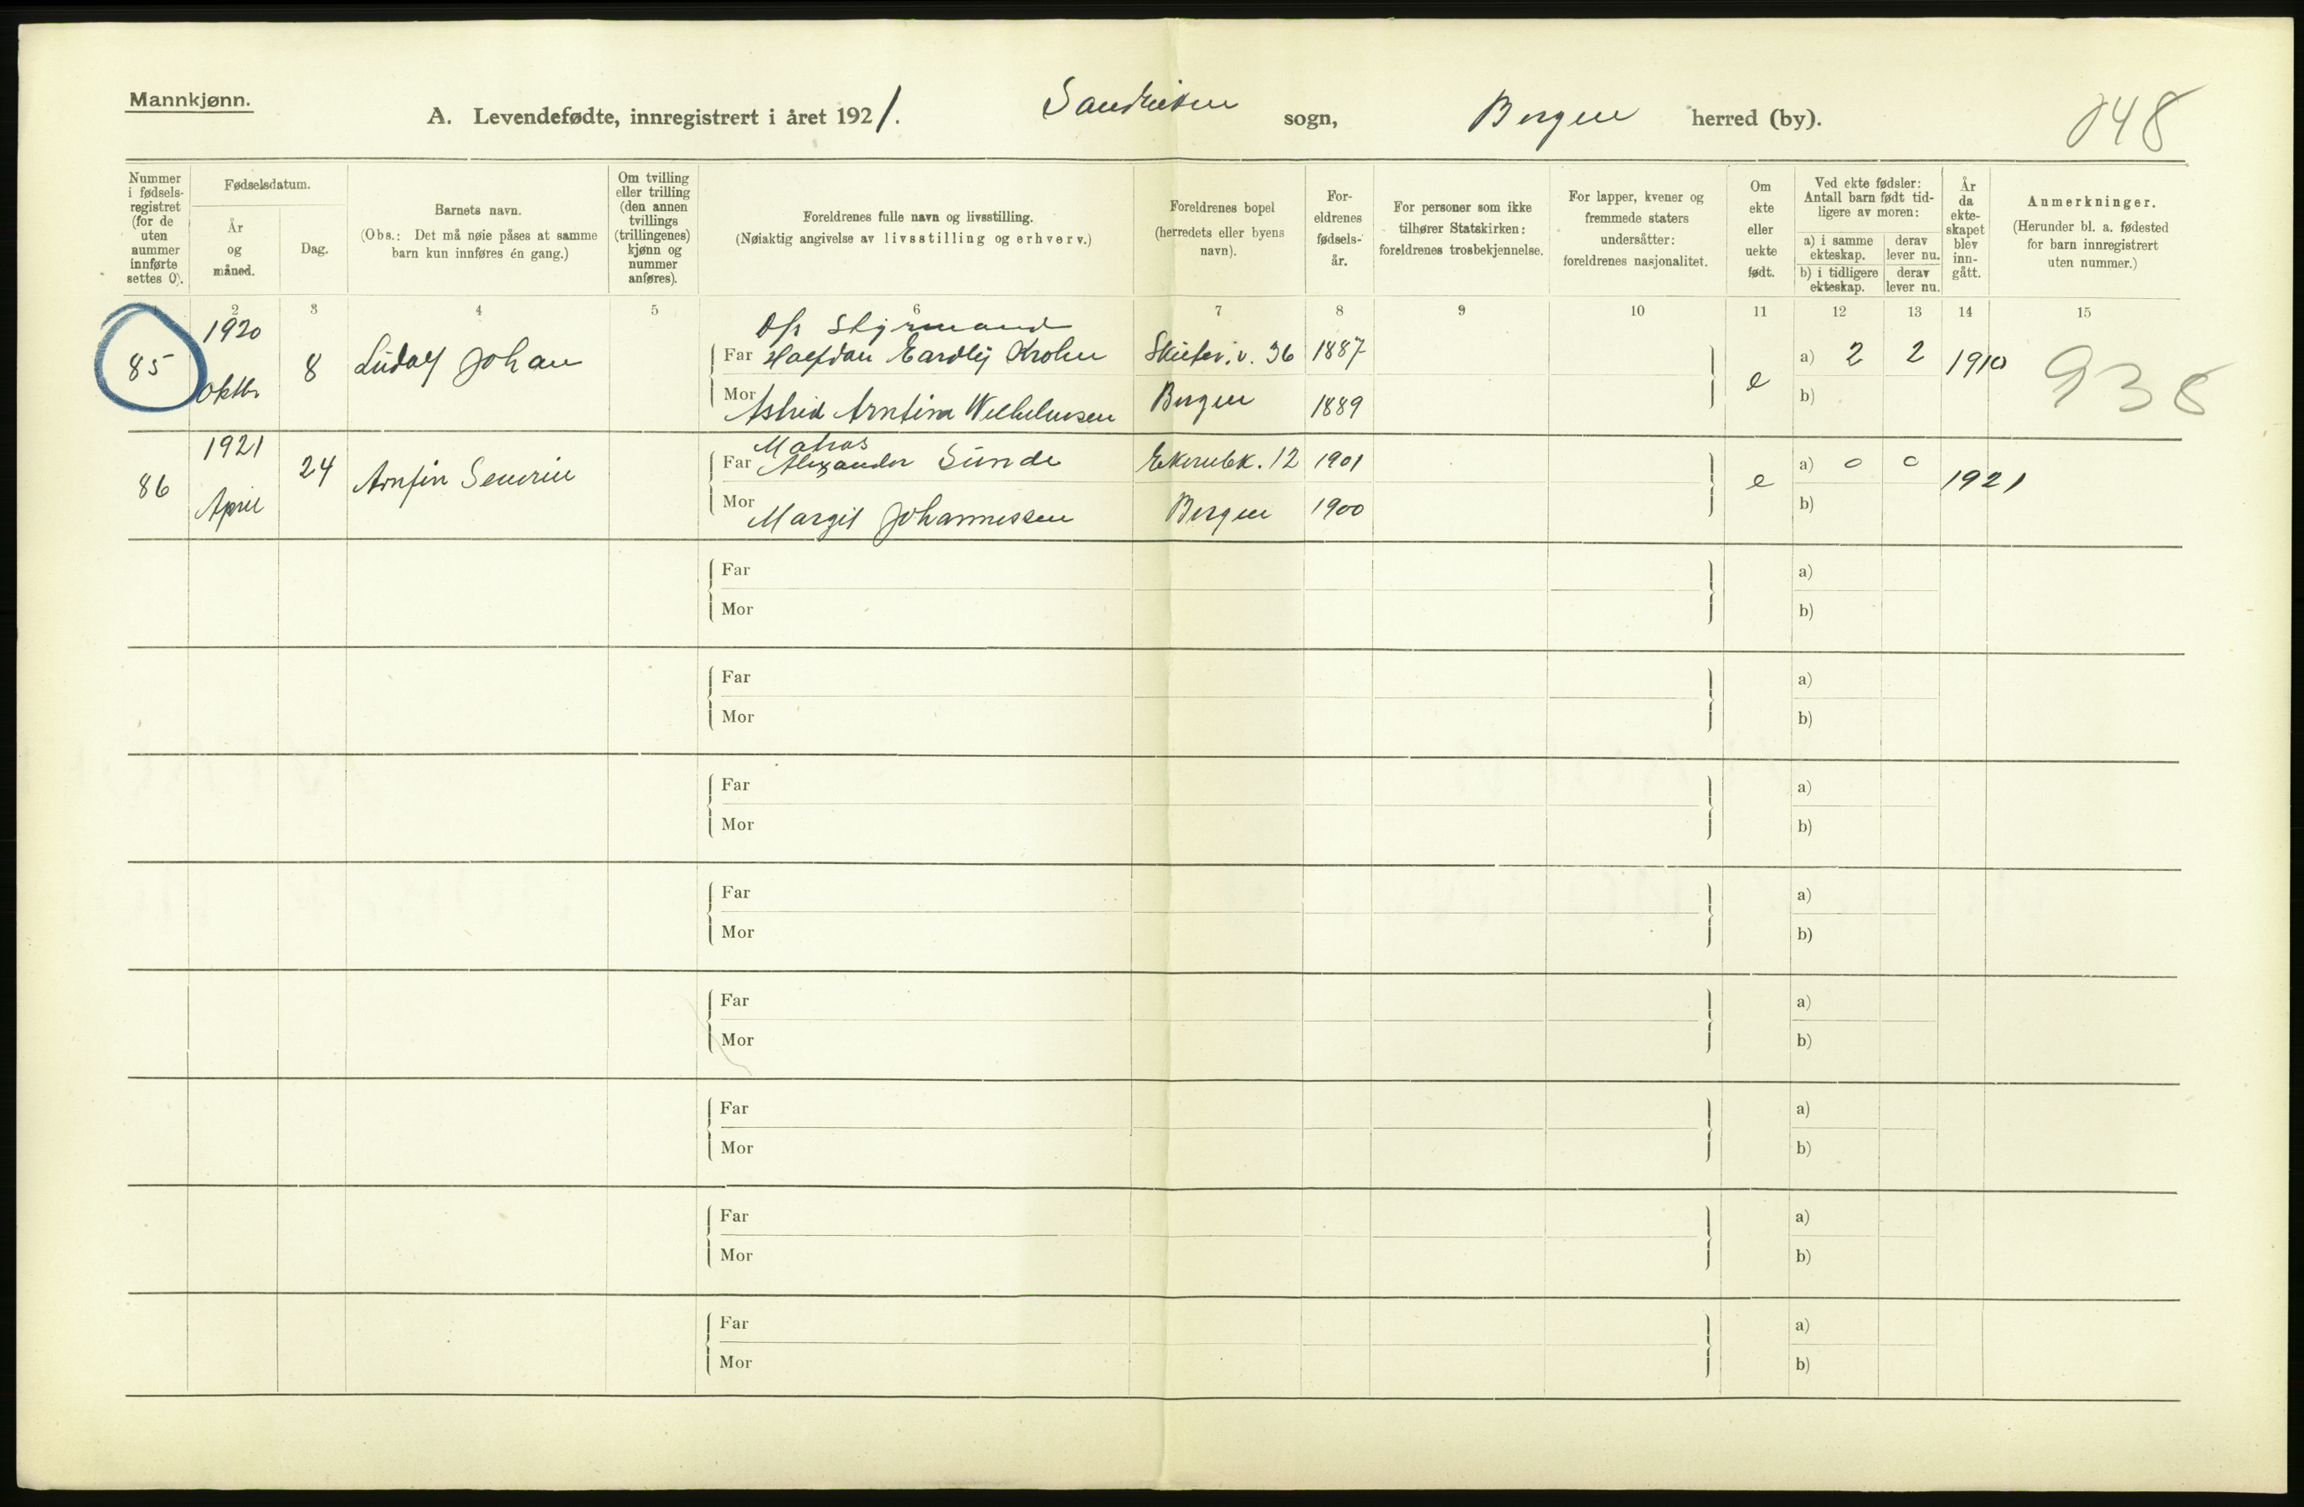 Mannkjønn.
A. Levendefødte, innregistrert i året 1921. Sandviken sogn, Bergen herred (by).
Nummer i fødsels-registret (for de uten nummer innførte settes 0).
Fødselsdatum.
År og måned.
Dag.
Barnets navn.
(Obs.: Det må nøie påses at samme barn kun innføres én gang.)
Om tvilling eller trilling (den annen tvillings (trillingenes) kjønn og nummer anføres).
Foreldrenes fulle navn og livsstilling.
(Nøiaktig angivelse av livsstilling og erhverv.)
Foreldrenes bopel (herredets eller byens navn).
For-eldrenes fødsels-år.
For personer som ikke tilhører Statskirken: foreldrenes trosbekjennelse.
For lapper, kvener og fremmede staters undersåtter: foreldrenes nasjonalitet.
Om ekte eller uekte født.
Ved ekte fødsler: Antall barn født tid-ligere av moren:
a) i samme ekteskap.
derav lever nu.
b) i tidligere ekteskap.
derav lever nu.
År da ekte-skapet blev inn-gått.
Anmerkninger.
(Herunder bl. a. fødested for barn innregistrert uten nummer.)
2 3 4 5 6 7 8 9 10 11 12 13 14 15
1920 Styrmand
85 8 Ludolf Johan Far Halfdan Eardly Krohn Skutev. v. 36 1887 e a) 2 2 1910 938
Oktbr Mor Astrid Arnfina Wilhelmsen Bergen 1889 b)
1921 Matros
86 24 Arnfin Severin Far Alexander Sunde 12 1901 e a) 0 0 1921
April Mor Margit Johannessen Bergen 1900 b)
Far a)
Mor b)
Far a)
Mor b)
Far a)
Mor b)
Far a)
Mor b)
Far a)
Mor b)
Far a)
Mor b)
Far a)
Mor b)
Far a)
Mor b)